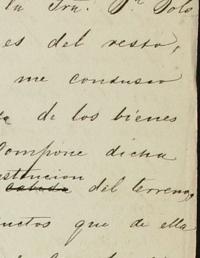 la Sra. Dª Dolo
es del resto,
me conduseo
de los bienes
Compone dicha
stencion
del terreno,
uctos que de ella